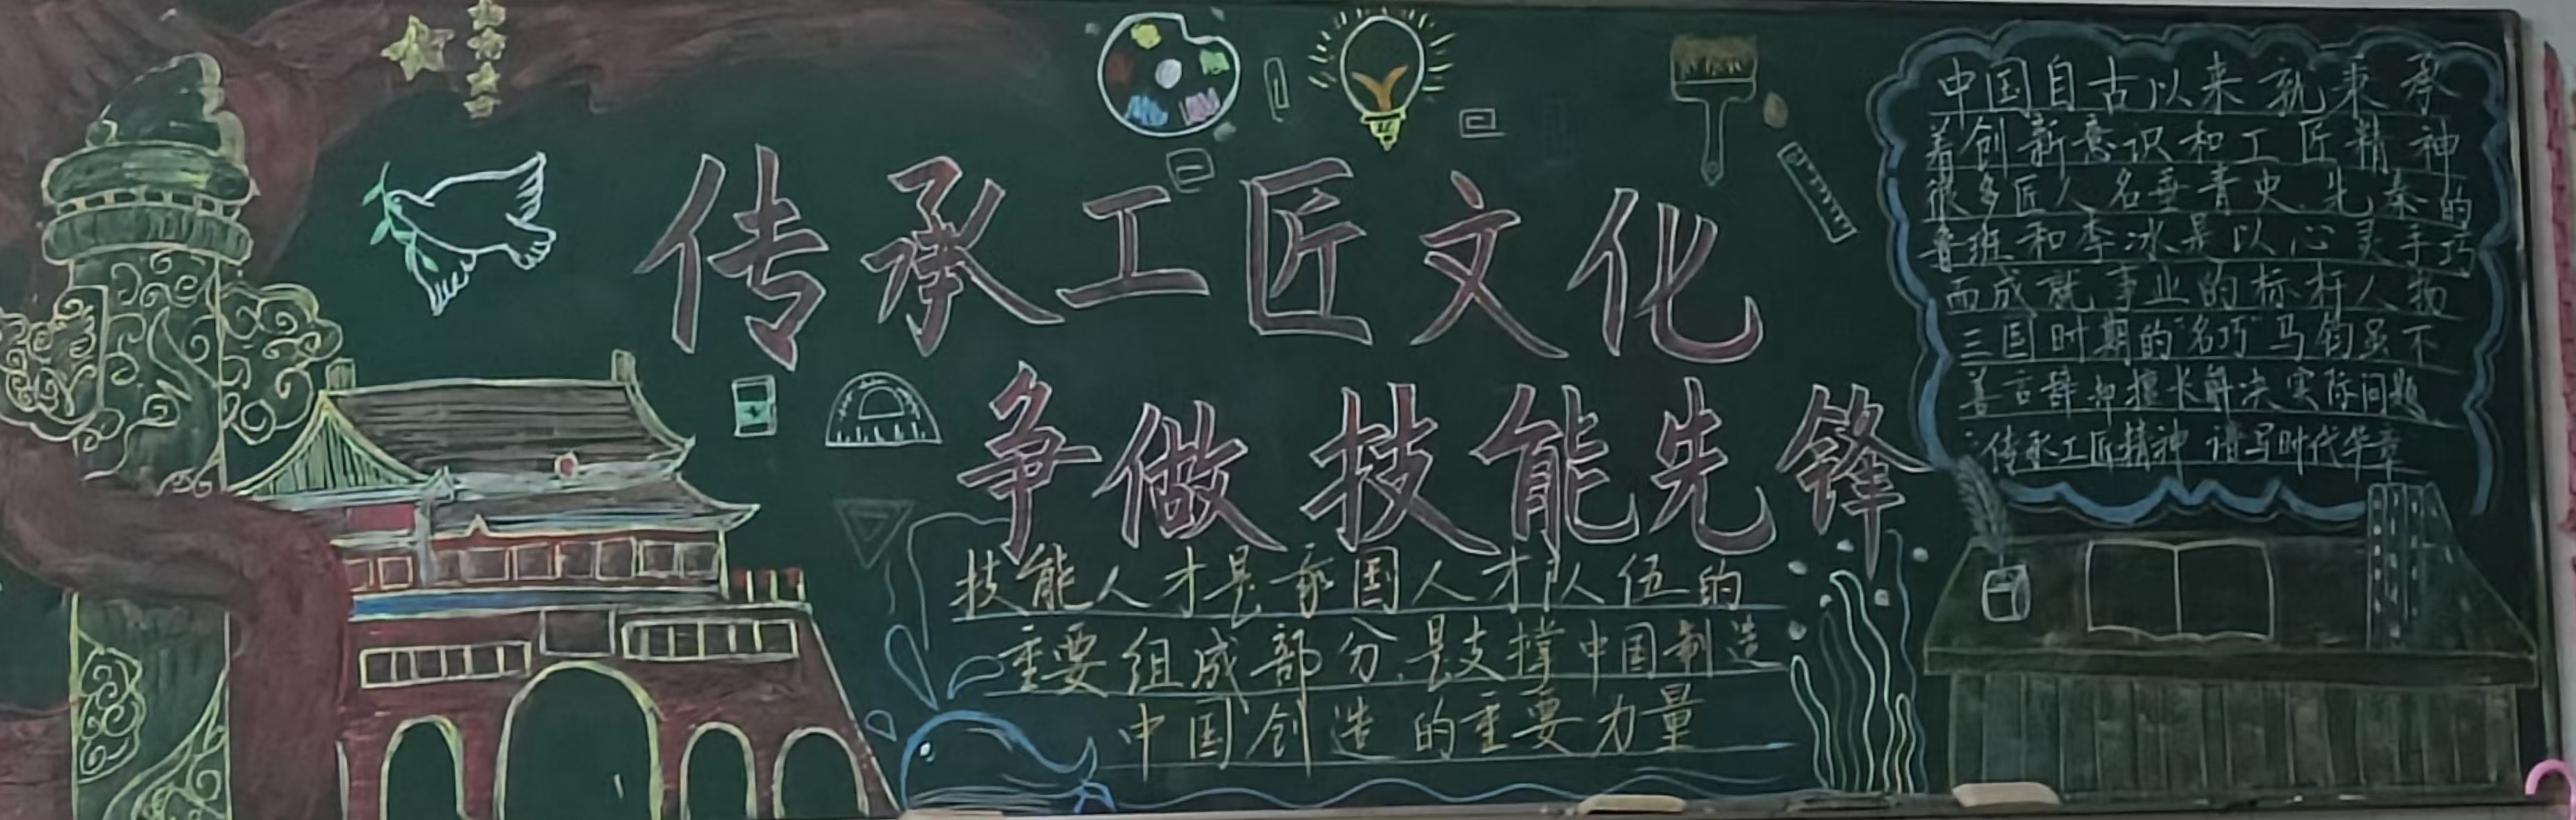 传承工匠文化
争做技能先锋
技能人才是家国人才队伍的
重要组成部分.是支撑中国制造
中国创造的重要力量
中国自古以来就秉承
着创新意识和工匠精神
很多匠人名垂青史.先秦的
鲁班和李冰是以心灵手巧
而成就事业的标杆人物
三国时期的"名巧"马钧虽不
善言辞却擅长解决实际问题
传承工匠精神 谱写时代华章